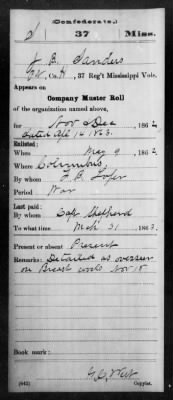 (Confederate.)
S 37 Miss.
J. B. Sanders
Co. H, 37 Reg't Mississippi Vols.
Appears on
Company Muster Roll
of the organization named above,
for Nov & Dec, 1862.
dated Apl 14 1863.
Enlisted:
When May 9, 1862.
Where Columbus,
By whom
Period War
Last paid:
By whom Capt Shepherd
To what time Mch 31, 1863.
Present or absent Present
Remarks: Detailed as overseer
on Breast works Nov 18
Book mark:
(642) Copyist.